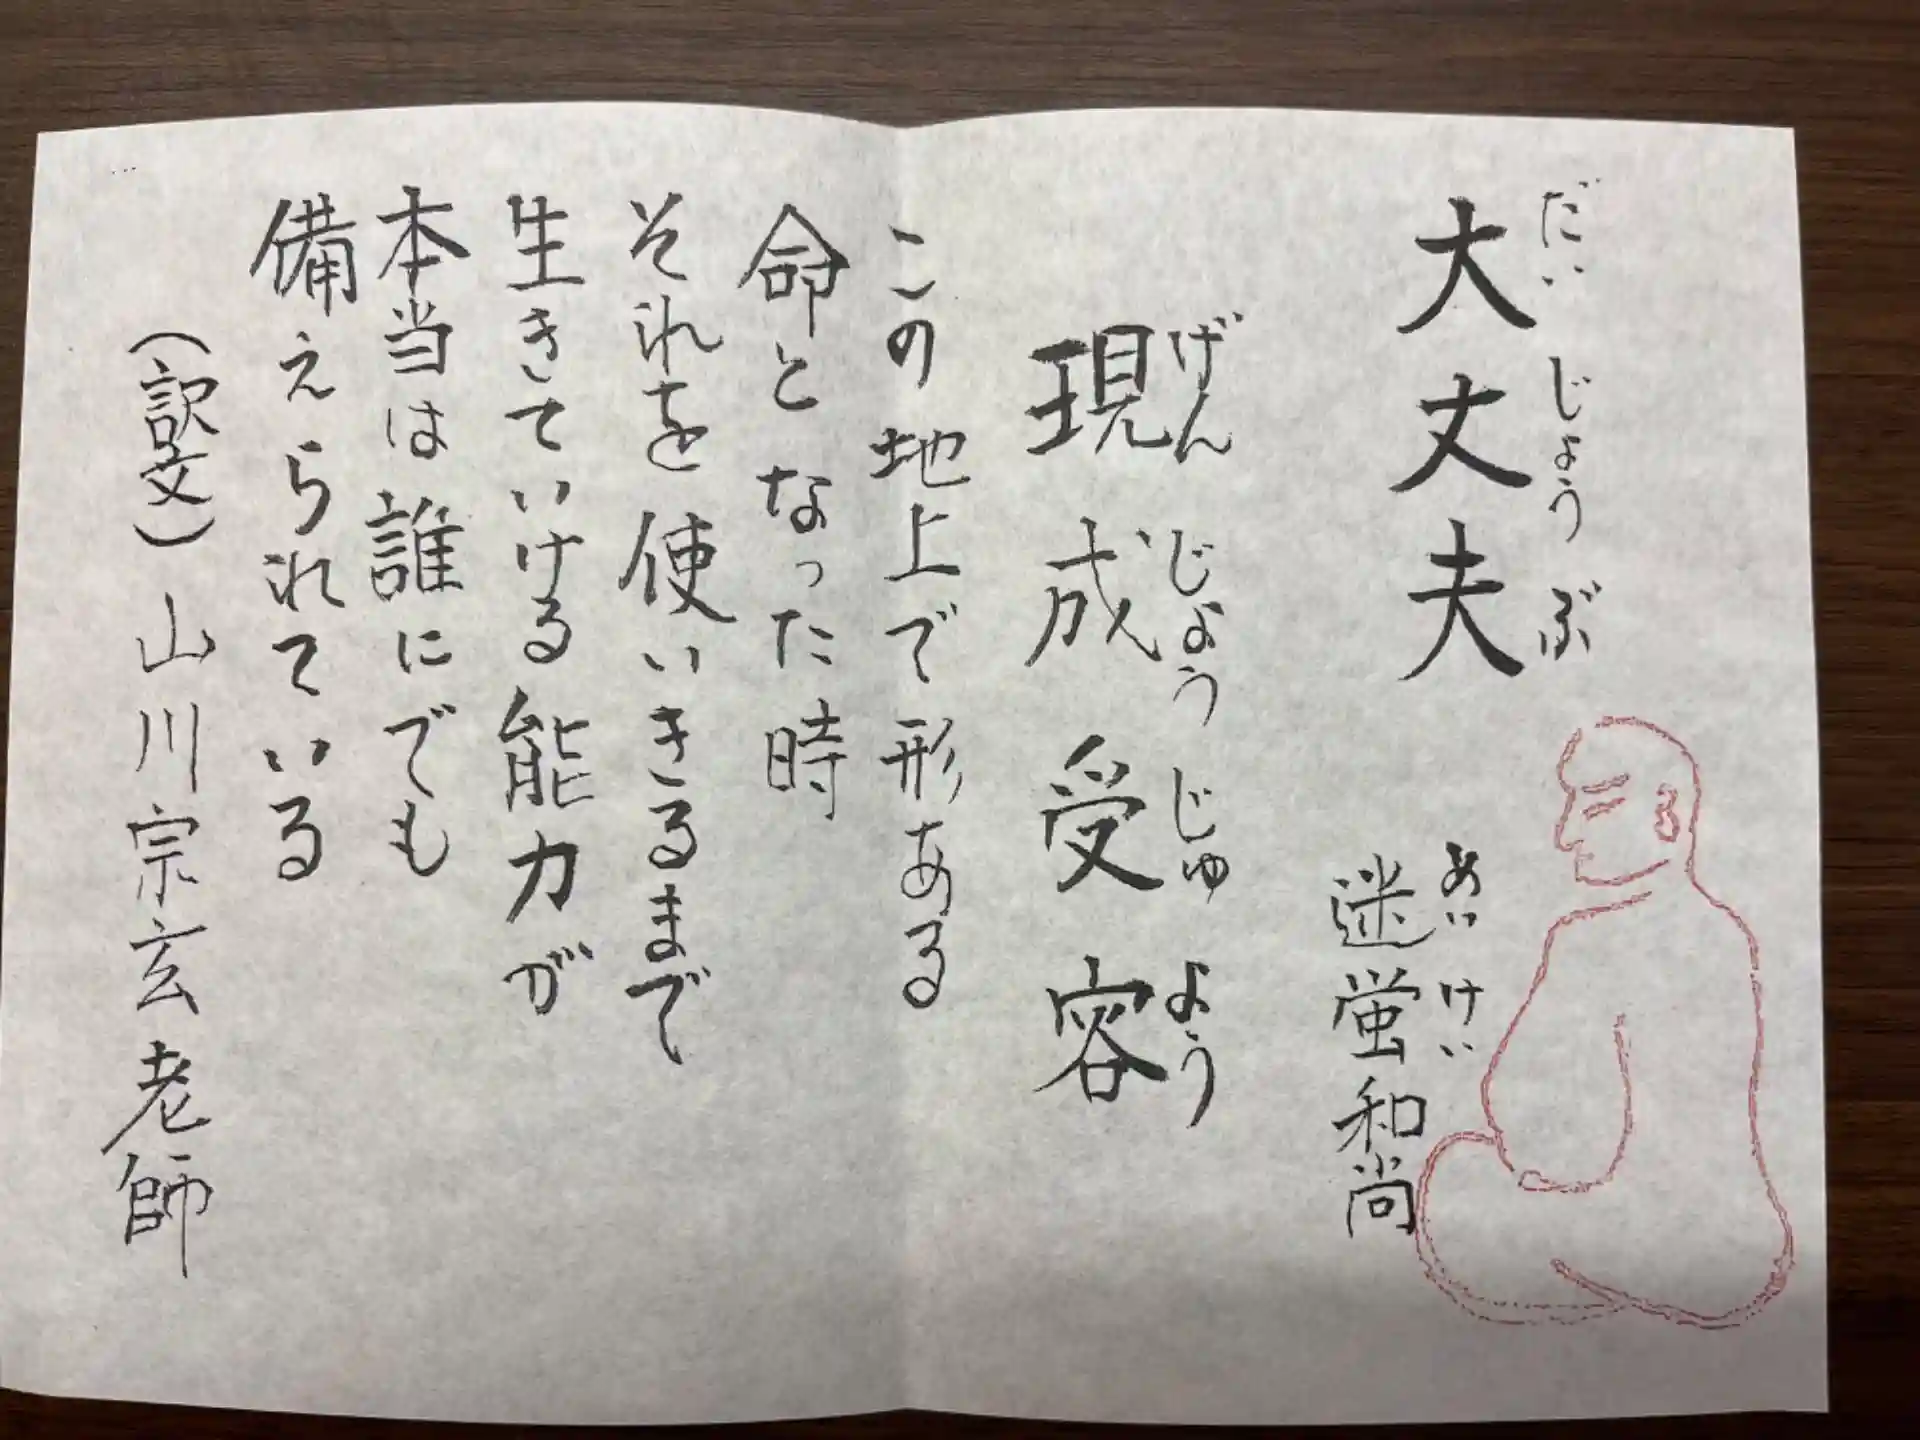 大丈夫
だいじょうぶ
迷蛍和尚
めいけい
現成受容
げんじょうじゅよう
この地上で形ある
命となった時
それを使いきるまで
生きていける能力が
本当は誰にでも
備えられている
(訳文)山川宗玄老師